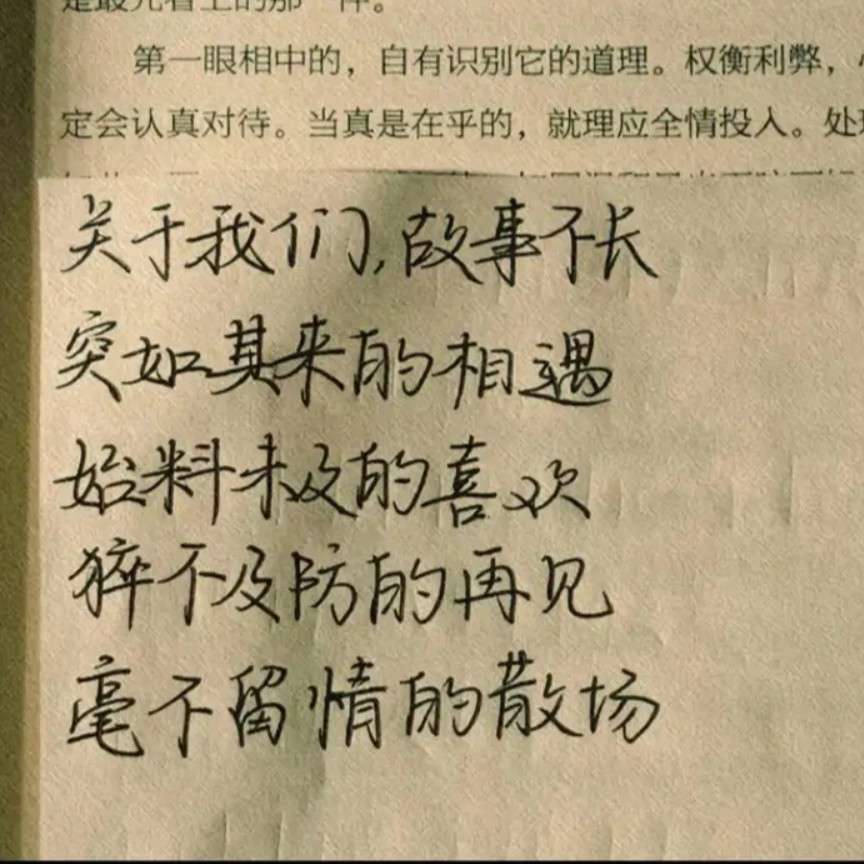 是最先看上的那一件。
第一眼相中的，自有识别它的道理。权衡利弊，
定会认真对待。当真是在乎的，就理应全情投入。处理
关于我们,故事不长
突如其来的相遇
始料未及的喜欢
猝不及防的再见
毫不留情的散场